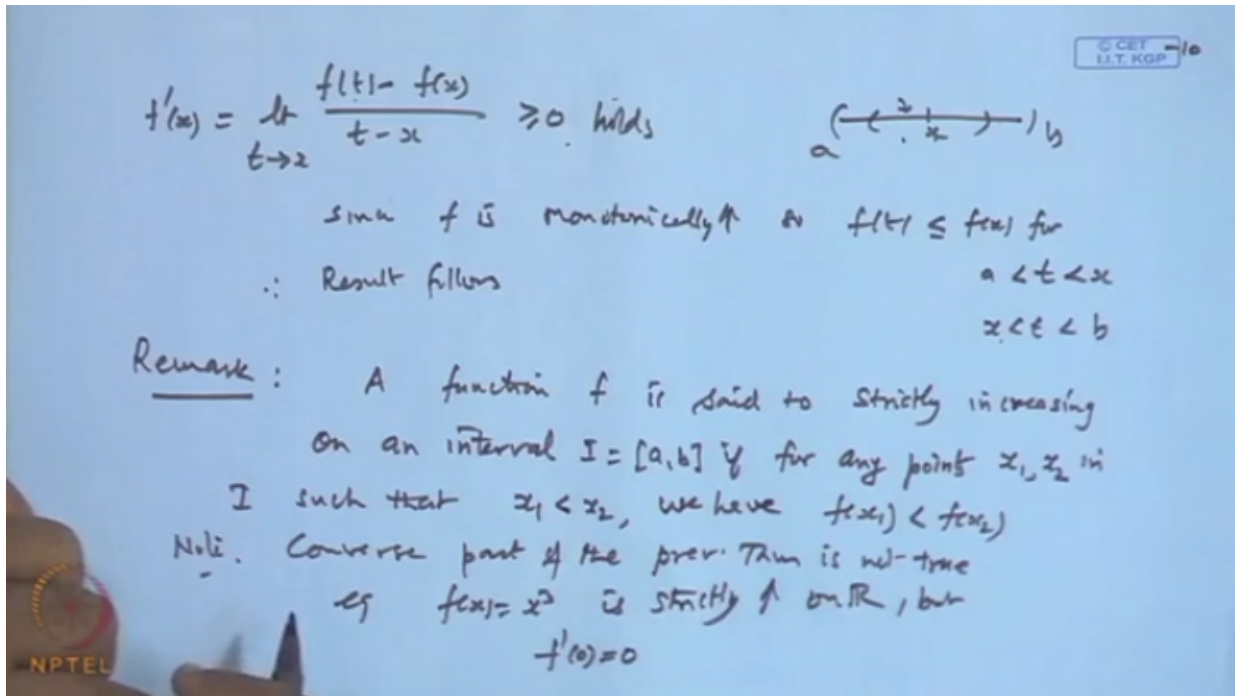 © CET
I.I.T. KGP
-10
f'(x) = lt_{t→x} \frac{f(t) - f(x)}{t - x} ≥ 0 holds
a x b
since f is monotonically ↑ so f(t) ≤ f(x) for
a < t < x
∴ Result follows
x < t < b
Remark : A function f is said to strictly increasing
on an interval I = [a, b] if for any points x_1, x_2 in
I such that x_1 < x_2, we have f(x_1) < f(x_2)
Note. Converse part of the prev. Thm is not true
eg f(x) = x^3 is strictly ↑ on R, but
f'(0) = 0
NPTEL